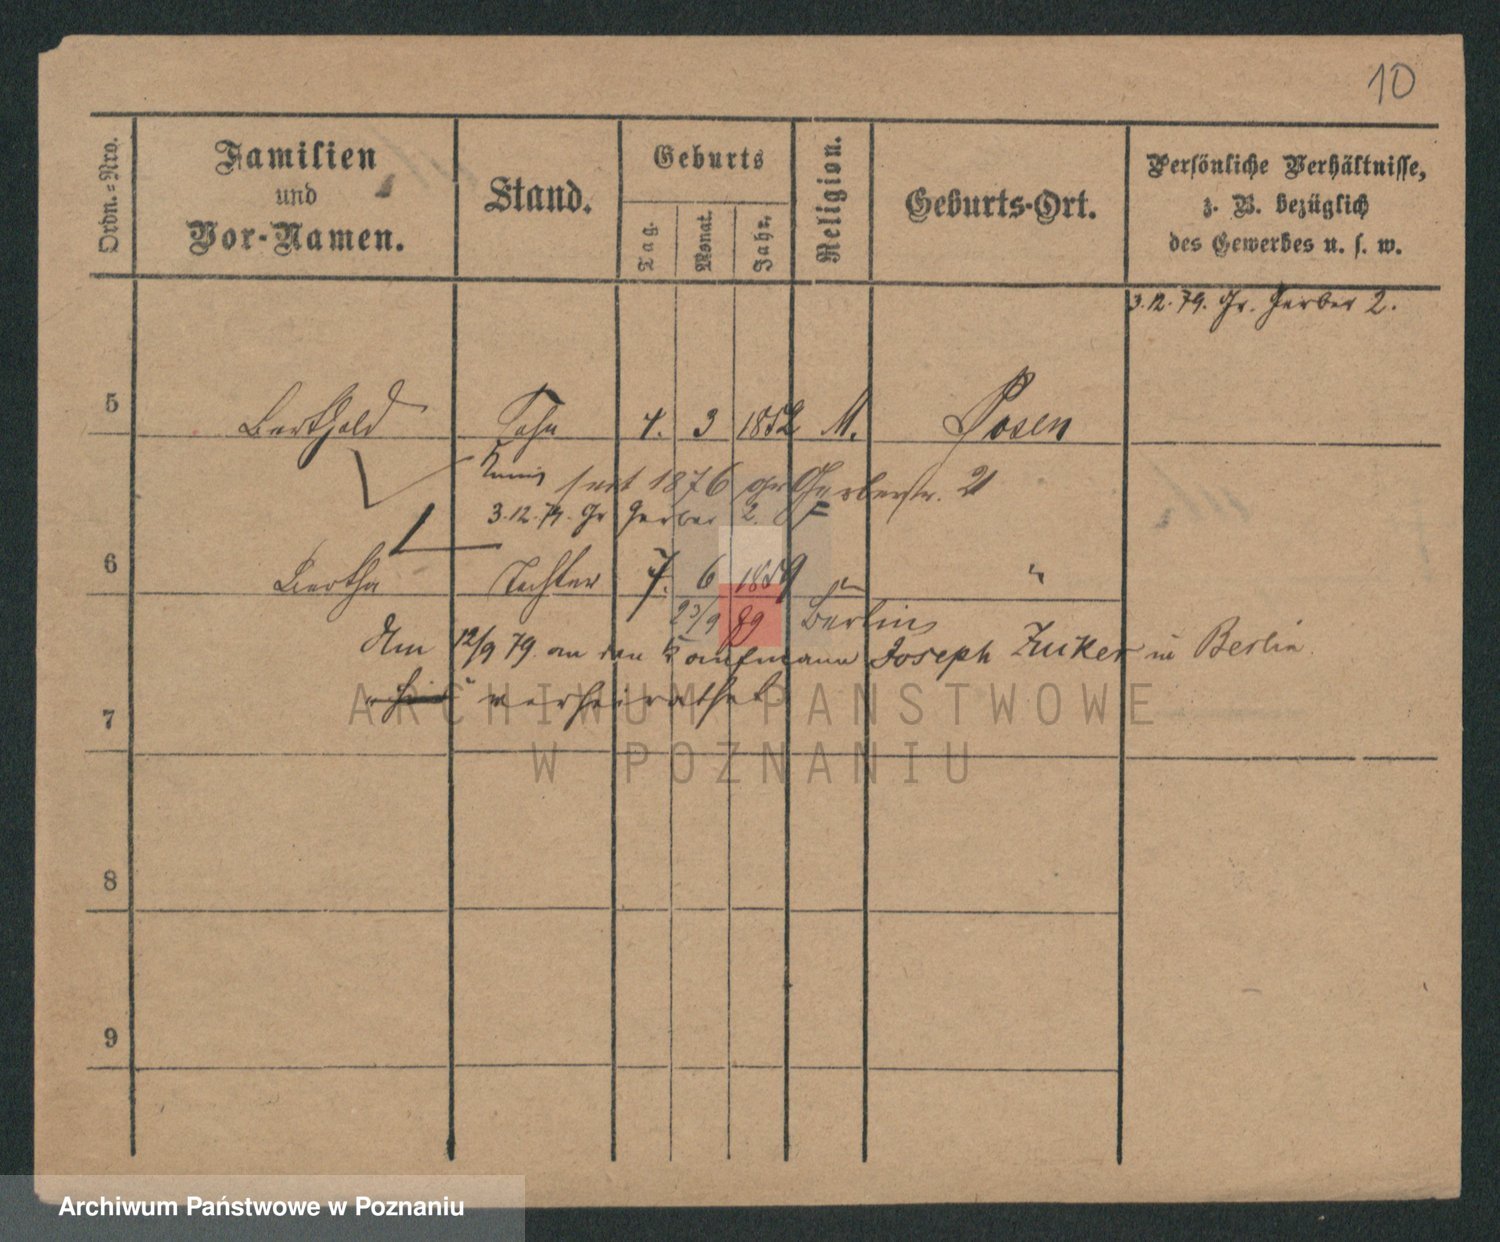 10
Ordn.=Nro.
Familien
und
Vor-Namen.
Stand.
Geburts
Tag.
Monat.
Jahr.
Religion.
Geburts-Ort.
Persönliche Verhältnisse,
z. B. bezüglich
des Gewerbes u. s. w.
3.12.79. Gr. Gerber 2.
5 Berthold Sohn 4. 3 1852 M. Posen
seit 1876 gr Gerberstr. 21
3.12.79. Gr Gerber 2.
6 Bertha Tochter 7. 6 1859 " "
23/9 89 Berlin
Am 12/9 79 an den Kaufmann Joseph Zuker in Berlin
7 verheirathet
8
9
ARCHIWUM PAŃSTWOWE
W POZNANIU
Archiwum Państwowe w Poznaniu